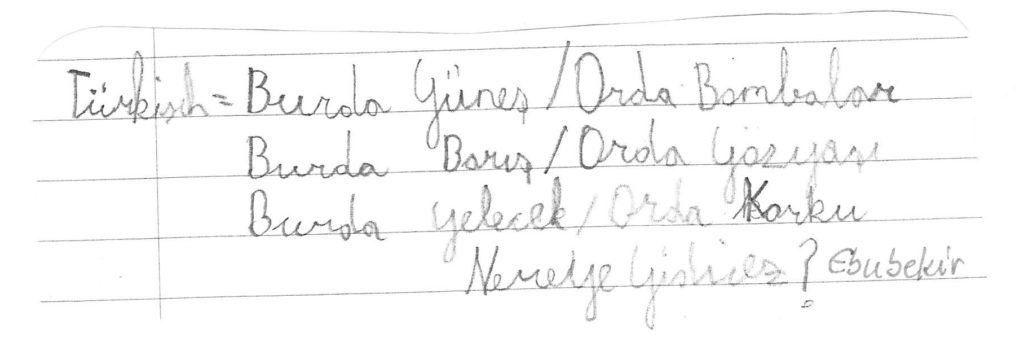 Türkisch = Burda Güneş / Orda Bombalar
Burda Barış / Orda Gözyaşı
Burda gelecek / Orda Korku
Nereye Gidicez? Ebubekir